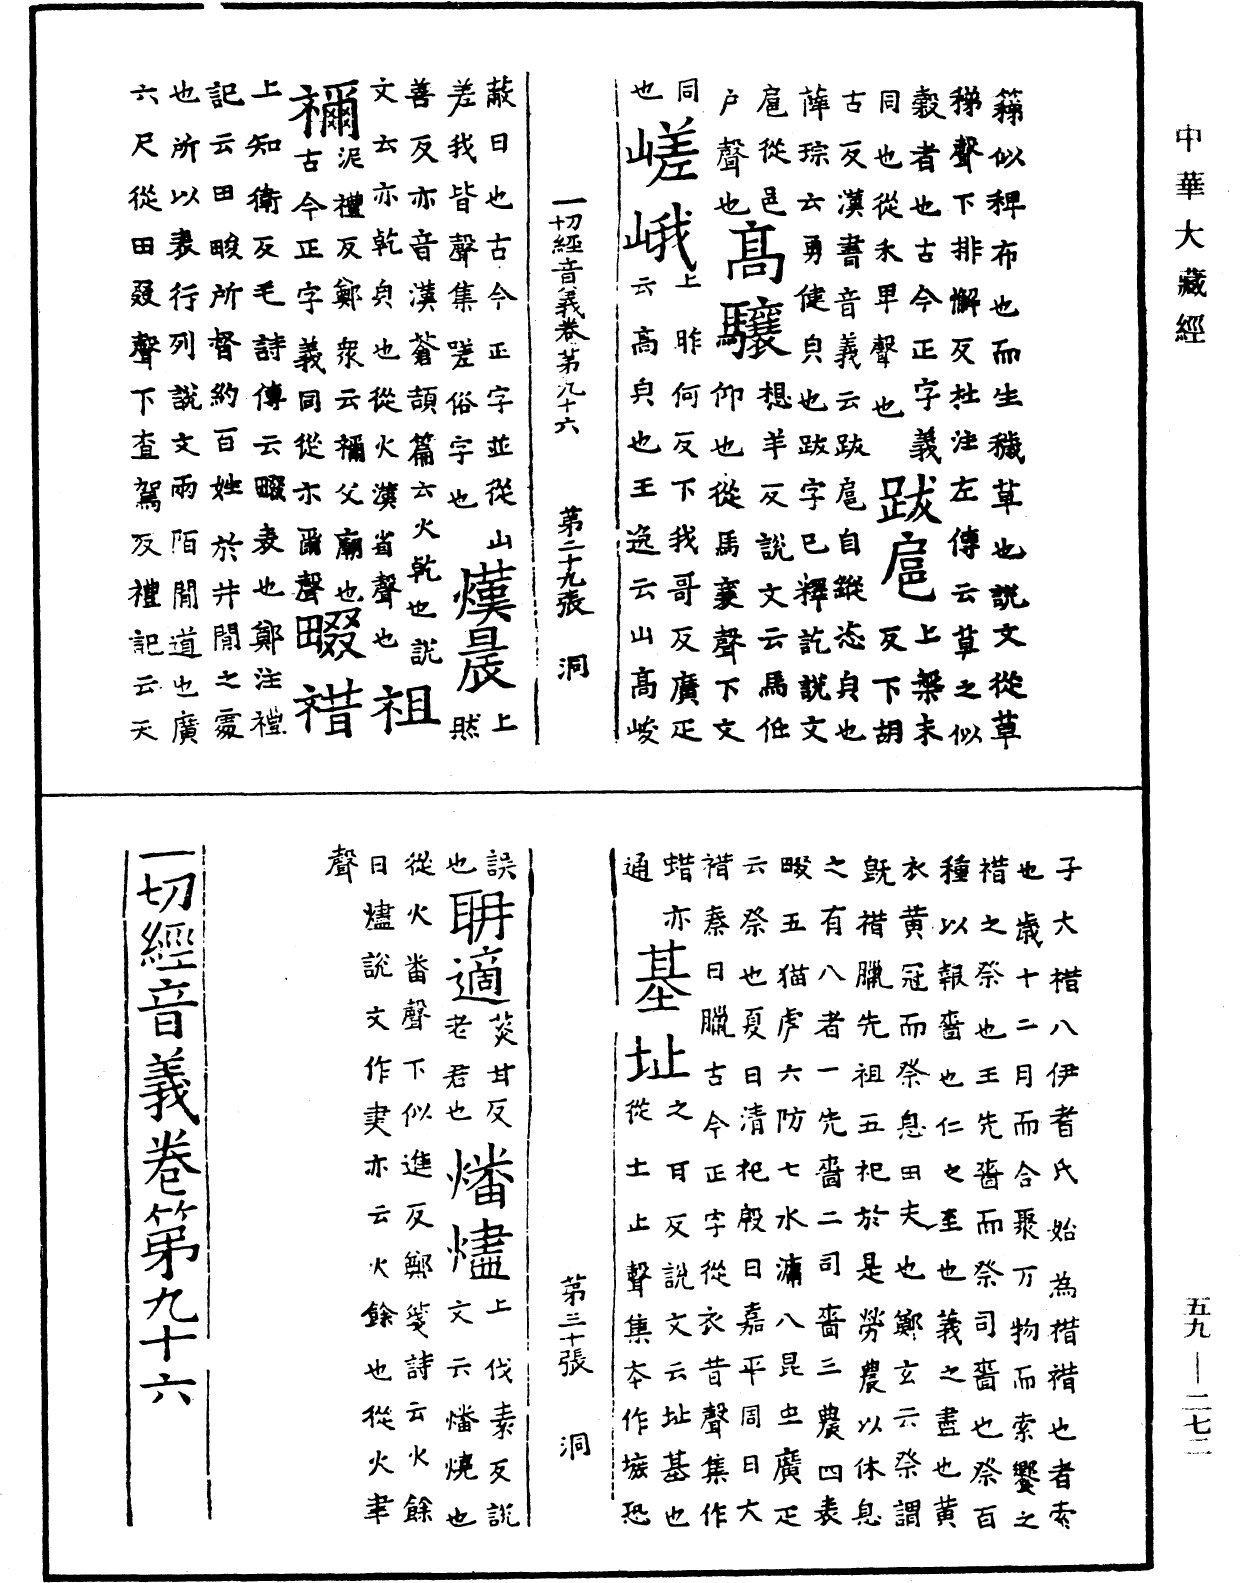 中華大藏經
䅣似稗布也而生穢草也說文從草
稊聲下排懈反杜注左傳云草之似
穀者也古今正字義
同也從禾卑聲也
跋扈
上槃末
反下胡
古反漢書音義云跋扈自縱恣皃也
薛琮云勇健皃也跋字已釋訖說文
扈從邑
戶聲也
高驤
想羊反說文云馬低
仰也從馬襄聲下文
同
也
嵯峨
上昨何反下我哥反廣疋
云高皃也王逸云山高峻
一切經音義卷第九十六 第二十九張 洞
蔽日也古今正字並從山
差我皆聲集嗟俗字也
熯晨
上
然
善反亦音漢蒼頡篇云火乾也說
文云亦乾皃也從火漢省聲也
祖
禰
泥禮反鄭衆云禰父廟也
古今正字義同從示爾聲
畷䄍
上知衛反毛詩傳云畷表也鄭注禮
記云田畯所督約百姓於井閒之處
也所以表行列說文兩陌閒道也廣
六尺從田叕聲下查駕反禮記云天
子大䄍八伊耆氏始為䄍䄍也者索
也歲十二月而合聚万物而索饗之
䄍之祭也王先嗇而祭司嗇也祭百
種以報嗇也仁之至也義之盡也黃
衣黃冠而祭息田夫也鄭玄云祭謂
旣䄍臘先祖五祀於是勞農以休息
之有八者一先嗇二司嗇三農四表
畷五猫虎六防七水㵍八昆虫廣疋
云祭也夏曰清祀殷曰嘉平周曰大
䄍秦曰臘古今正字從衣昔聲集作
蜡亦
通
基址
之耳反說文云址基也
從土止聲集本作㘬恐
第三十張 洞
誤
也
耼適
菼甘反
老君也
燔燼
上伐素反說
文云燔燒也
從火番聲下似進反鄭箋詩云火餘
曰燼說文作㶳亦云火餘也從火聿
聲
一切經音義卷第九十六
五九—二七二